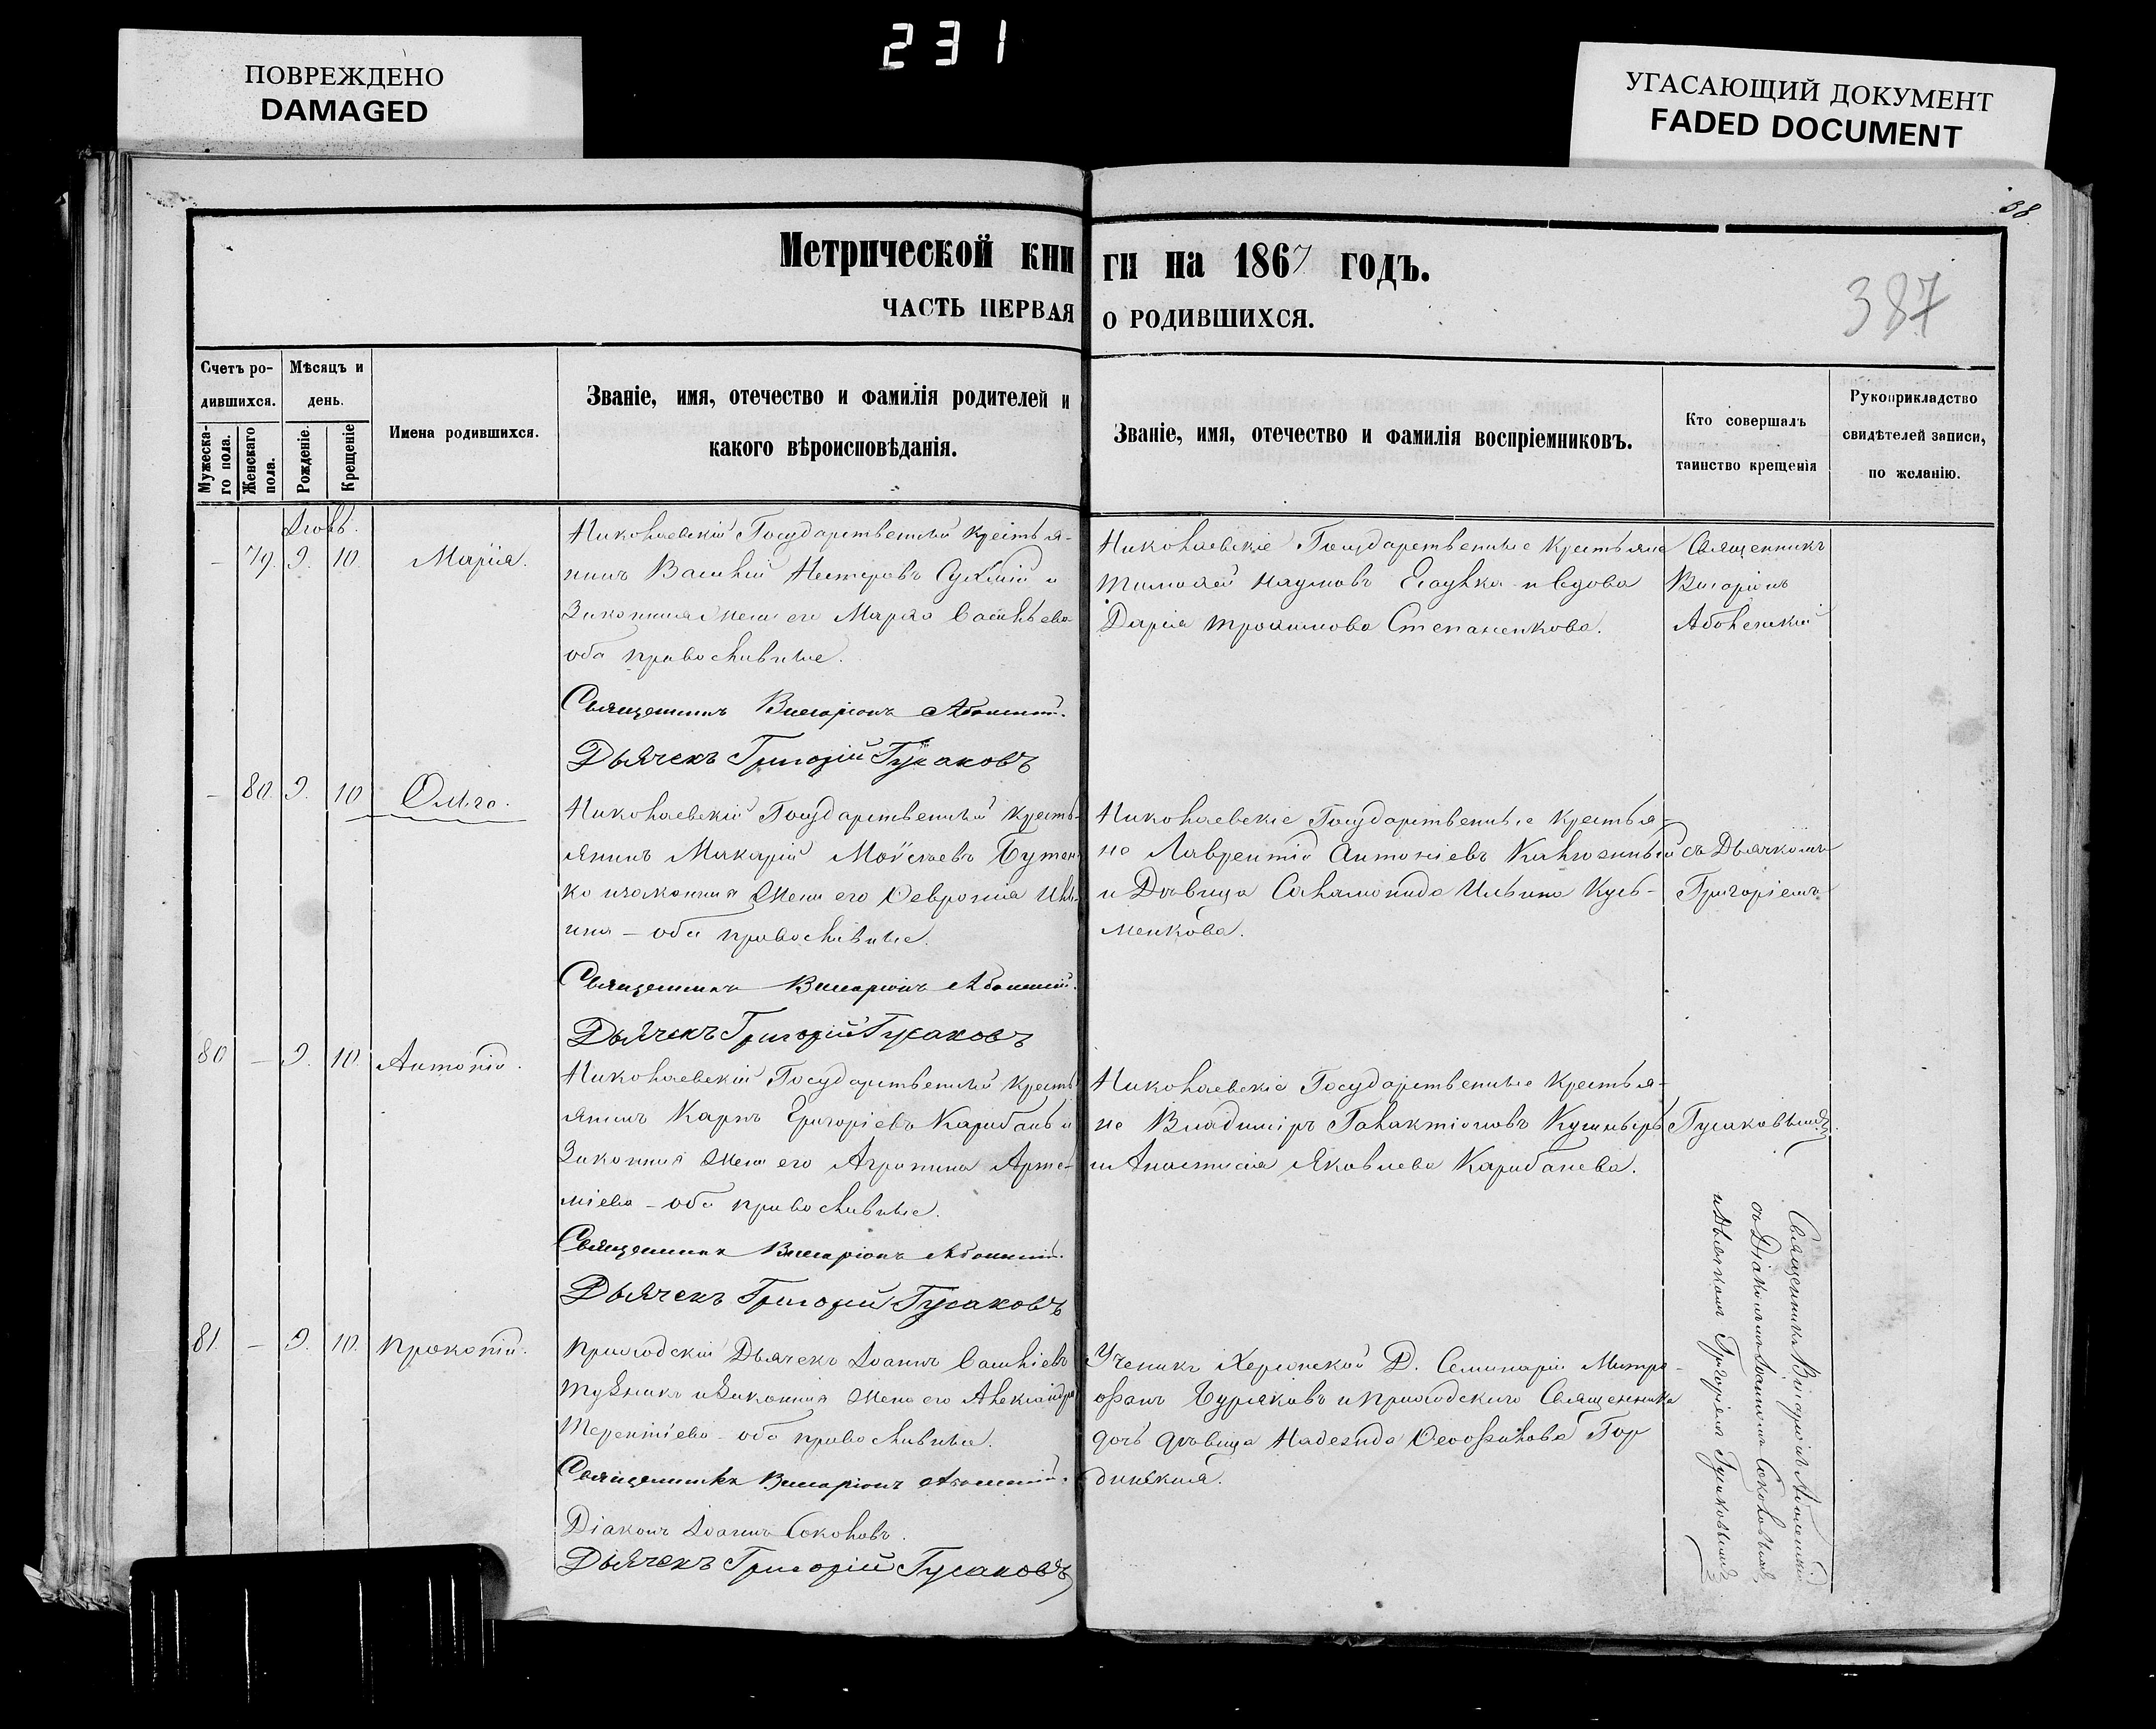 231
ПОВРЕЖДЕНО
DAMAGED
УГАСАЮЩИЙ ДОКУМЕНТ
FADED DOCUMENT
38
387
Метрической книги на 1867 годъ.
ЧАСТЬ ПЕРВАЯ О РОДИВШИХСЯ.
Счетъ ро-
дившихся.
Мужеска-
го пола.
Женскаго
пола.
Мѣсяцъ и
день.
Рожденіе.
Крещеніе
Имена родившихся.
Званіе, имя, отечество и фамилія родителей и
какого вѣроисповѣданія.
Званіе, имя, отечество и фамилія воспріемниковъ.
Кто совершалъ
таинство крещенія
Рукоприкладство
свидѣтелей записи,
по желанію.
– 79. 9. 10. Марія.
Николаевскій Государственный крестья-
нинъ Василій Нестеровъ и
Законная жена его Марфа Васильева
оба православные.
Священникъ Виссаріонъ
Дьячекъ Григорій Гусаковъ
Николаевскіе Государственные Крестьяне
Тимофей Наумовъ и вдова
Дарія Трофимова Степаненкова.
Священникъ
Виссаріонъ
– 80. 9. 10 Ольга.
Николаевскій Государственный кресть-
янинъ Макарій Моѵсеевъ Бутен-
ко и законная жена его Феврония
оба православные.
Священникъ Виссаріонъ
Дьячекъ Григорій Гусаковъ
Николаевскіе Государственные крестья-
не Лаврентій Антоніевъ
и Дѣвица Ильина Кузь-
менкова.
съ Дьячкомъ
Григоріемъ
80 – 9. 10. Антоній.
Николаевскій Государственный кресть-
янинъ Карпъ Григоріевъ Карабанъ и
Законная жена его Агрипина Арте-
міева – оба православные.
Священникъ Виссаріонъ
Дьячекъ Григорій Гусаковъ
Николаевскіе Государственные крестья-
не Владиміръ Галактіоновъ Кушниръ
и Анастасія Яковлева Карабанева.
Гусаковымъ.
81. – 9. 10. Прокопій.
Дьячекъ Іоаннъ Васильевъ
и Законная жена его Александра
Терентіева – оба православные.
Священникъ Виссаріонъ
Діаконъ Іоаннъ Соколовъ.
Дьячекъ Григорій Гусаковъ
Ученикъ Херсонской Д. Семинаріи Митро-
фанъ Бурлаковъ и Священника
дочь дѣвица Надежда Феофилова

Священникъ Виссаріонъ
съ Діакономъ Іоанномъ Соколовымъ,
и Дьячкомъ Григоріемъ Гусаковымъ